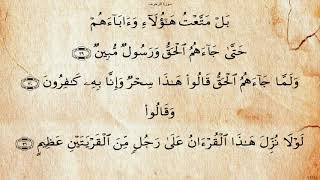 سورة الزخرف
بَلْ مَتَّعْتُ هَٰٓؤُلَآءِ وَءَابَآءَهُمْ
حَتَّىٰ جَآءَهُمُ ٱلْحَقُّ وَرَسُولٌ مُّبِينٌ ۝٢٩
وَلَمَّا جَآءَهُمُ ٱلْحَقُّ قَالُوا۟ هَٰذَا سِحْرٌ وَإِنَّا بِهِۦ كَٰفِرُونَ ۝٣٠
وَقَالُوا۟
لَوْلَا نُزِّلَ هَٰذَا ٱلْقُرْءَانُ عَلَىٰ رَجُلٍ مِّنَ ٱلْقَرْيَتَيْنِ عَظِيمٍ ۝٣١